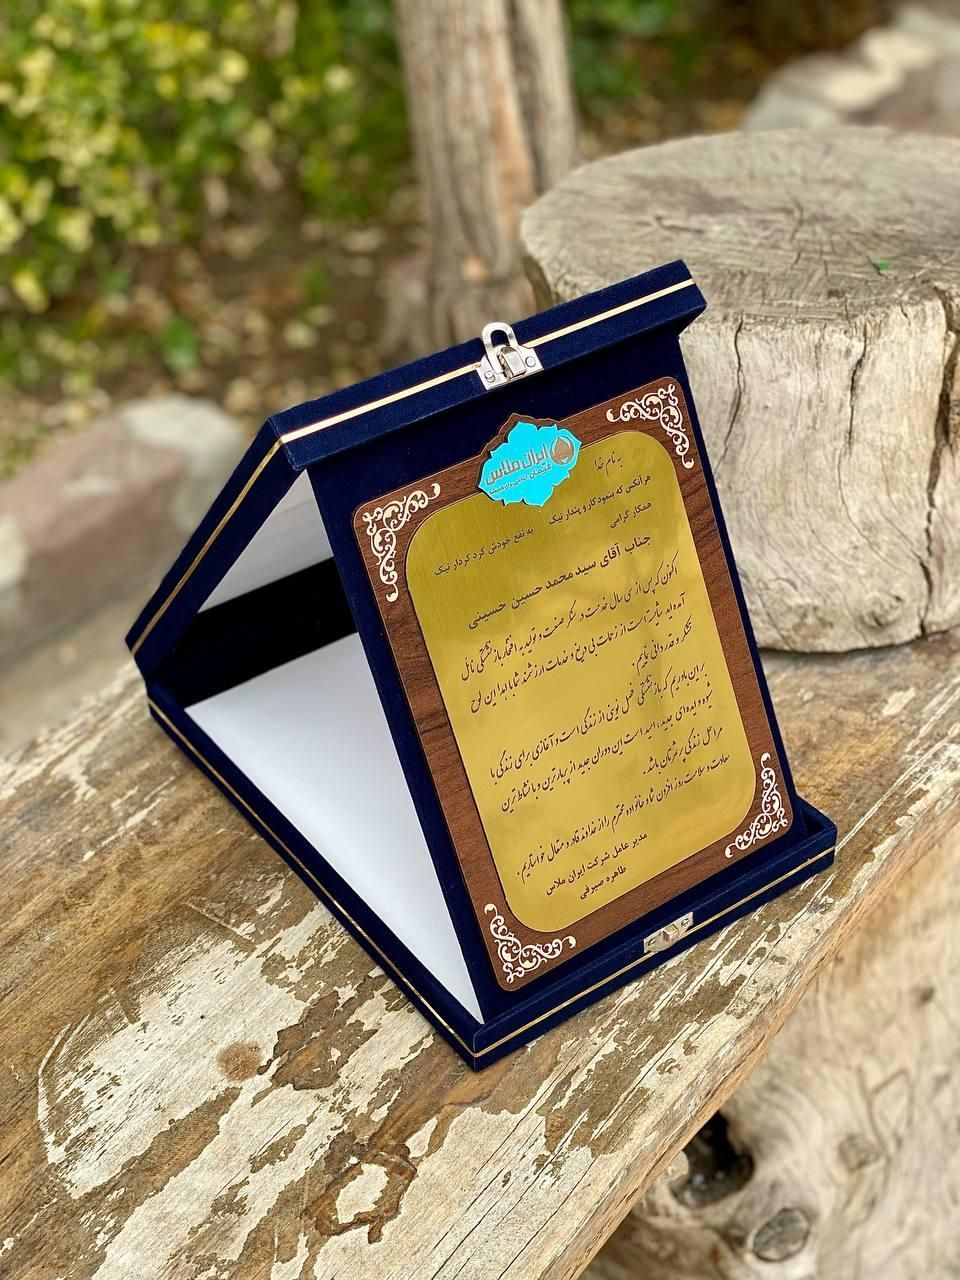 ایران ملاس
به نام خدا
هر آنکس که بنمود کار و پندار نیک
به نفع خودش کرد کردار نیک
همکار گرامی
جناب آقای سید محمد حسین حسینی
اکنون که پس از سی سال خدمت در سنگر صنعت و تولید به افتخار بازنشستگی نائل
آمده اید شایسته است از زحمات بی دریغ و خدمات ارزشمند شما با اهدا این لوح
تشکر و قدردانی نماییم.
بر این باوریم که بازنشستگی فصل نوینی از زندگی است و آغازی برای زندگی با
شیوه و ایده های جدید، امید است این دوران جدید از پربارترین و با نشاط ترین
مراحل زندگی پر ثمرتان باشد.
سعادت و سلامت روز افزون شما و خانواده محترم را از خداوند قادر و متعال خواستاریم.
مدیر عامل شرکت ایران ملاس
طاهره صیرفی